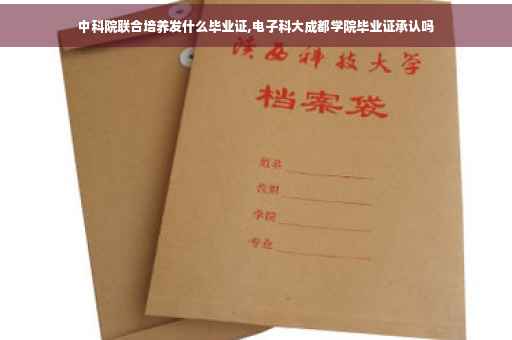 中科院联合培养发什么毕业证,电子科大成都学院毕业证承认吗
陕西科技大学
档案袋
姓名
学院
专业